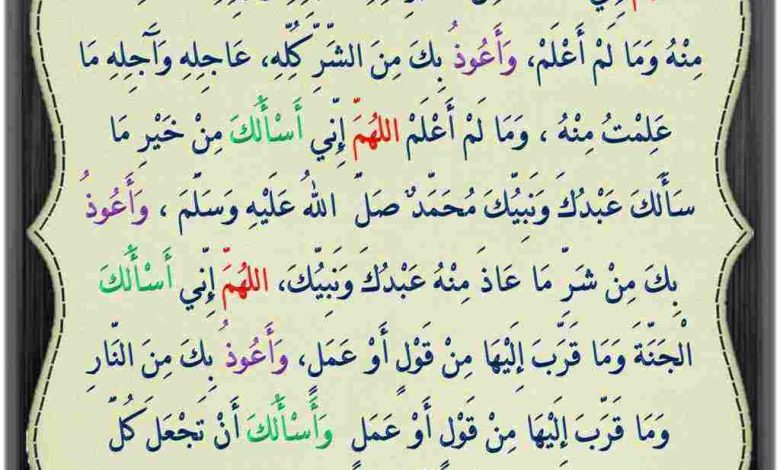 مِنْهُ وَمَا لَمْ أَعْلَمْ، وَأَعُوذُ بِكَ مِنَ الشَّرِّ كُلِّهِ، عَاجِلِهِ وَآجِلِهِ مَا
عَلِمْتُ مِنْهُ ، وَمَا لَمْ أَعْلَمْ اللهُمَّ إِنِّي أَسْأَلُكَ مِنْ خَيْرِ مَا
سَأَلَكَ عَبْدُكَ وَنَبِيُّكَ مُحَمَّدٌ صَلِّ اللهُ عَلَيْهِ وَسَلَّمَ ، وَأَعُوذُ
بِكَ مِنْ شَرِّ مَا عَاذَ مِنْهُ عَبْدُكَ وَنَبِيُّكَ، اللهُمَّ إِنِّي أَسْأَلُكَ
الْجَنَّةَ وَمَا قَرَّبَ إِلَيْهَا مِنْ قَوْلٍ أَوْ عَمَلٍ، وَأَعُوذُ بِكَ مِنَ النَّارِ
وَمَا قَرَّبَ إِلَيْهَا مِنْ قَوْلٍ أَوْ عَمَلٍ وَأَسْأَلُكَ أَنْ تَجْعَلَ كُلَّ